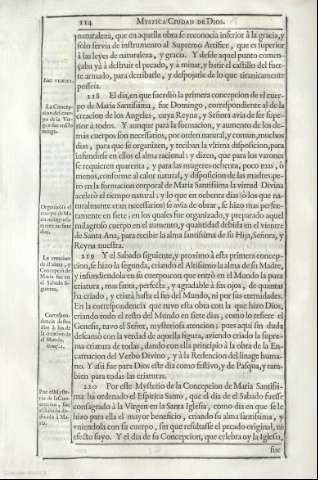 114 MYSTICA CIUDAD DE DIOS.
naturaleza, que en aquella obra se reconocia inferior à la gracia, y
solo servia de instrumento al Supremo Artifice, que es superior
à las leyes de naturaleza, y gracia. Y desde aquel punto comen-
çaba yà à destruir el pecado, y à minar, y batir el castillo del fuer-
te armado, para derribarle, y despojarle de lo que tiranicamente
posseia.
La Concep-
cion del cuer-
po de la Vir-
gen fue en Do-
mingo.
218 El dia, en que sucediò la primera concepcion de el cuer-
po de Maria Santissima, fue Domingo, correspondiente al de la
creacion de los Angeles, cuya Reyna, y Señora avia de ser supe-
rior à todos. Y aunque para la formacion, y aumento de los de-
màs cuerpos son necessarios, por orden natural, y comun, muchos
dias, para que se organizen, y reciban la vltima disposicion, para
infundirse en ellos el alma racional: y dizen, que para los varones
se requieren quarenta, y para las mugeres ochenta, poco mas, ò
menos, conforme al calor natural, y disposicion de las madres: pe-
ro en la formacion corporal de Maria Santissima la virtud Divina
acelerò el tiempo natural: y lo que en ochenta dias (ò los que na-
turalmente eran necessarios) se avia de obrar, se hizo mas perfec-
tamente en siete: en los quales fue organizado, y preparado aquel
milagroso cuerpo con el aumento, y quantidad debida en el vientre
de Santa Ana, para recibir la alma santissima de su Hija, Señora, y
Reyna nuestra.
La creacion
de el alma, y
Concepcion de
Maria fue en
el Sabado si-
guiente.
219 Y el Sabado siguiente, y proximo à esta primera concep-
cion, se hizo la segunda, criando el Altissimo la alma de su Madre,
y infundiendola en su cuerpo: con que entrò en el Mundo la pura
criatura, mas santa, perfecta, y agradable à sus ojos, de quantas
ha criado, y criarà hasta el fin del Mundo, ni por sus eternidades.
En la correspondencia que tuvo esta obra con la que hizo Dios,
criando todo el resto del Mundo en siete dias, como lo refiere el
Genesis, tuvo el Señor, mysteriosa atencion: pues aqui sin duda
descansò con la verdad de aquella figura, aviendo criado la supre-
ma criatura de todas, dando con ella principio à la obra de la En-
carnacion del Verbo Divino, y à la Redencion del linage huma-
no. Y assi fue para Dios este dia como festivo, y de Pasqua, y tam-
bien para todas las criaturas.
220 Por este Mysterio de la Concepcion de Maria Santissi-
ma ha ordenado el Espiritu Santo, que el dia de el Sabado fuesse
consagrado à la Virgen en la Santa Iglesia, como dia en que se le
hizo para ella el mayor beneficio, criando su alma santissima, y
vniendola con su cuerpo, sin que resultasse el pecado original, ni
efecto suyo. Y el dia de su Concepcion, que celebra oy la Iglesia,